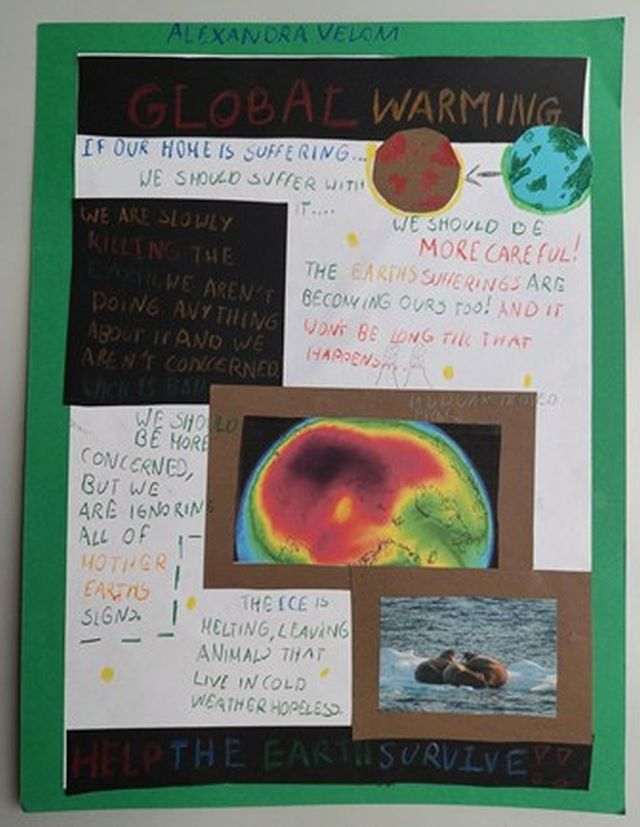 ALEXANDRA VELOM
GLOBAL WARMING
IF OUR HOME IS SUFFERING...
WE SHOULD SUFFER WITH
IT....
WE ARE SLOWLY
KILLING THE
EARTH, WE AREN'T
DOING ANYTHING
ABOUT IT AND WE
AREN'T CONCERNED,
WE SHOULD BE
MORE CAREFUL!
THE EARTHS SUFFERINGS ARE
BECOMING OURS TOO! AND IT
WON'T BE LONG TILL THAT
HAPPENS...
WE SHOULD
BE MORE
CONCERNED,
BUT WE
ARE IGNORING
ALL OF
MOTHER
EARTHS
SIGNS.
THE ICE IS
MELTING, LEAVING
ANIMALS THAT
LIVE IN COLD
WEATHER HOPELESS.
HELP THE EARTH SURVIVE!!